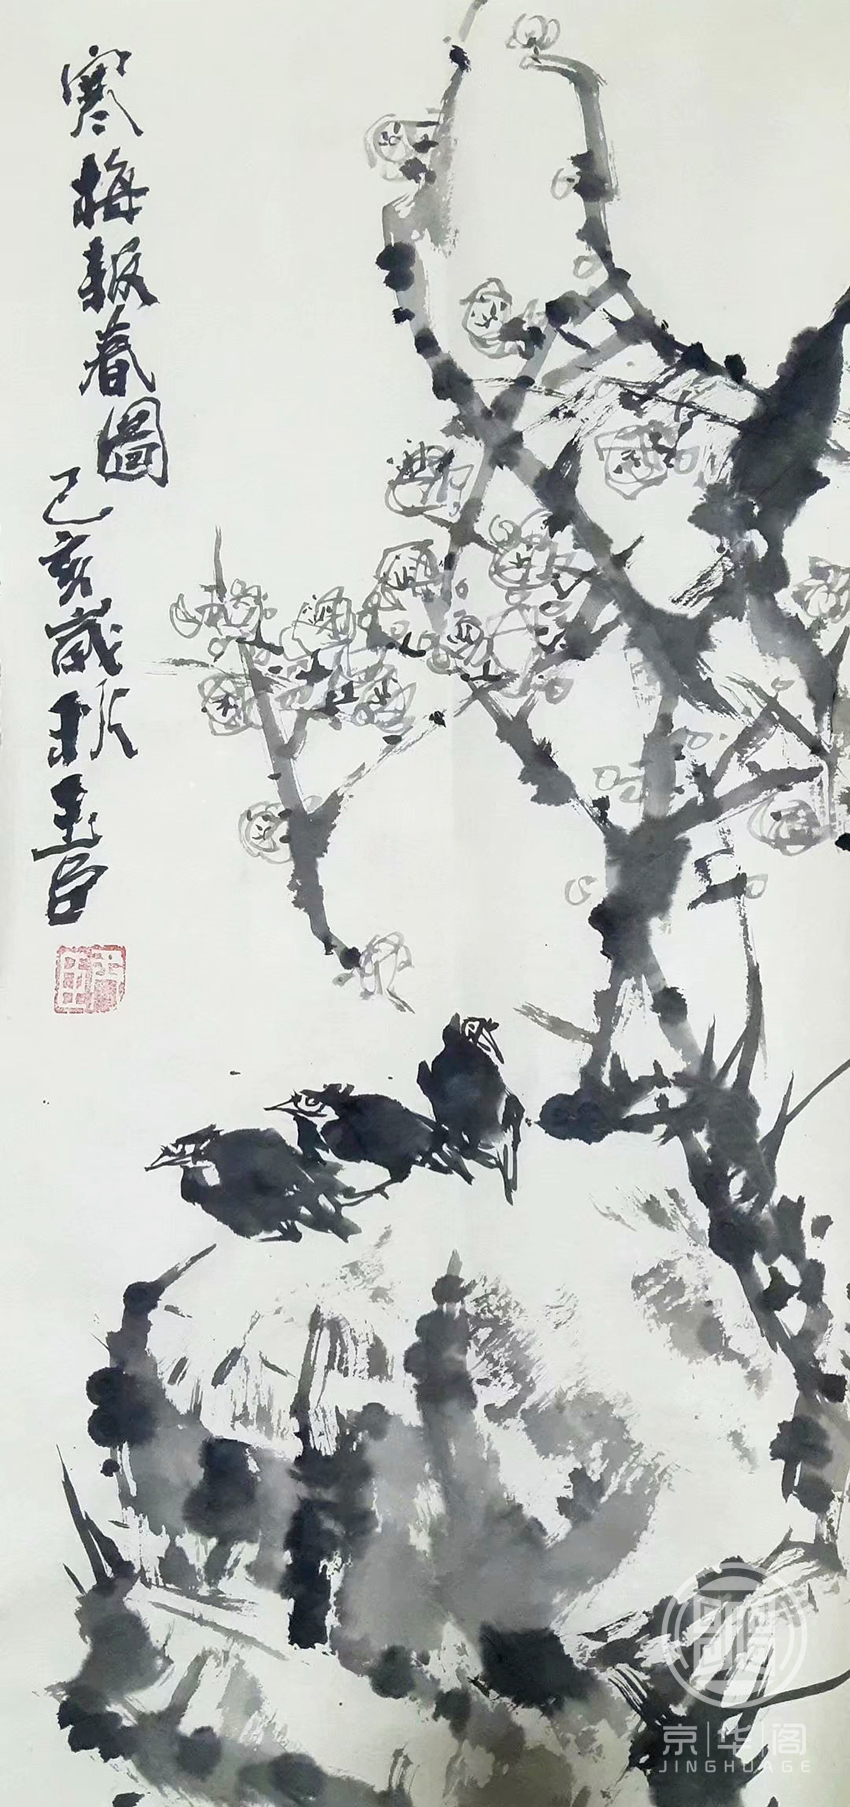 寒梅報春圖
己亥歲秋玉石
京华阁
JINGHUAGE